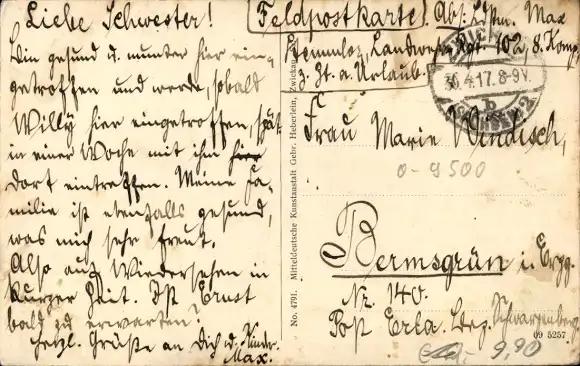 Liebe Schwester!
Bin gesund u. munter hier ein-
getroffen und werde, sobald
Willy hier eingetroffen, spät.
in einer Woche mit ihm hier
dort eintreffen. Meine Fa-
milie ist ebenfalls gesund,
was mich sehr freut.
Also auf Wiedersehen in
kurzer Zeit. Ist Ernst
bald zu erwarten?
Herzl. Grüße an Dich u. Kinder
Max.
No. 4791. Mitteldeutsche Kunstanstalt Gebr. Heberlein, Zwickau
Feldpostkarte! Abs: Ldstm. Max
Landw. Rgt. 102, 8. Komp.
z. Zt. a. Urlaub.
ZWICKAU
30.4.17. 8-9V.
b
(SACHSEN) 2
Frau Marie Windisch,
0-9500
Bermsgrün i. Erzg.
Nr. 140.
Post Erla. Bez. Schwarzenberg
09 5257
9,90